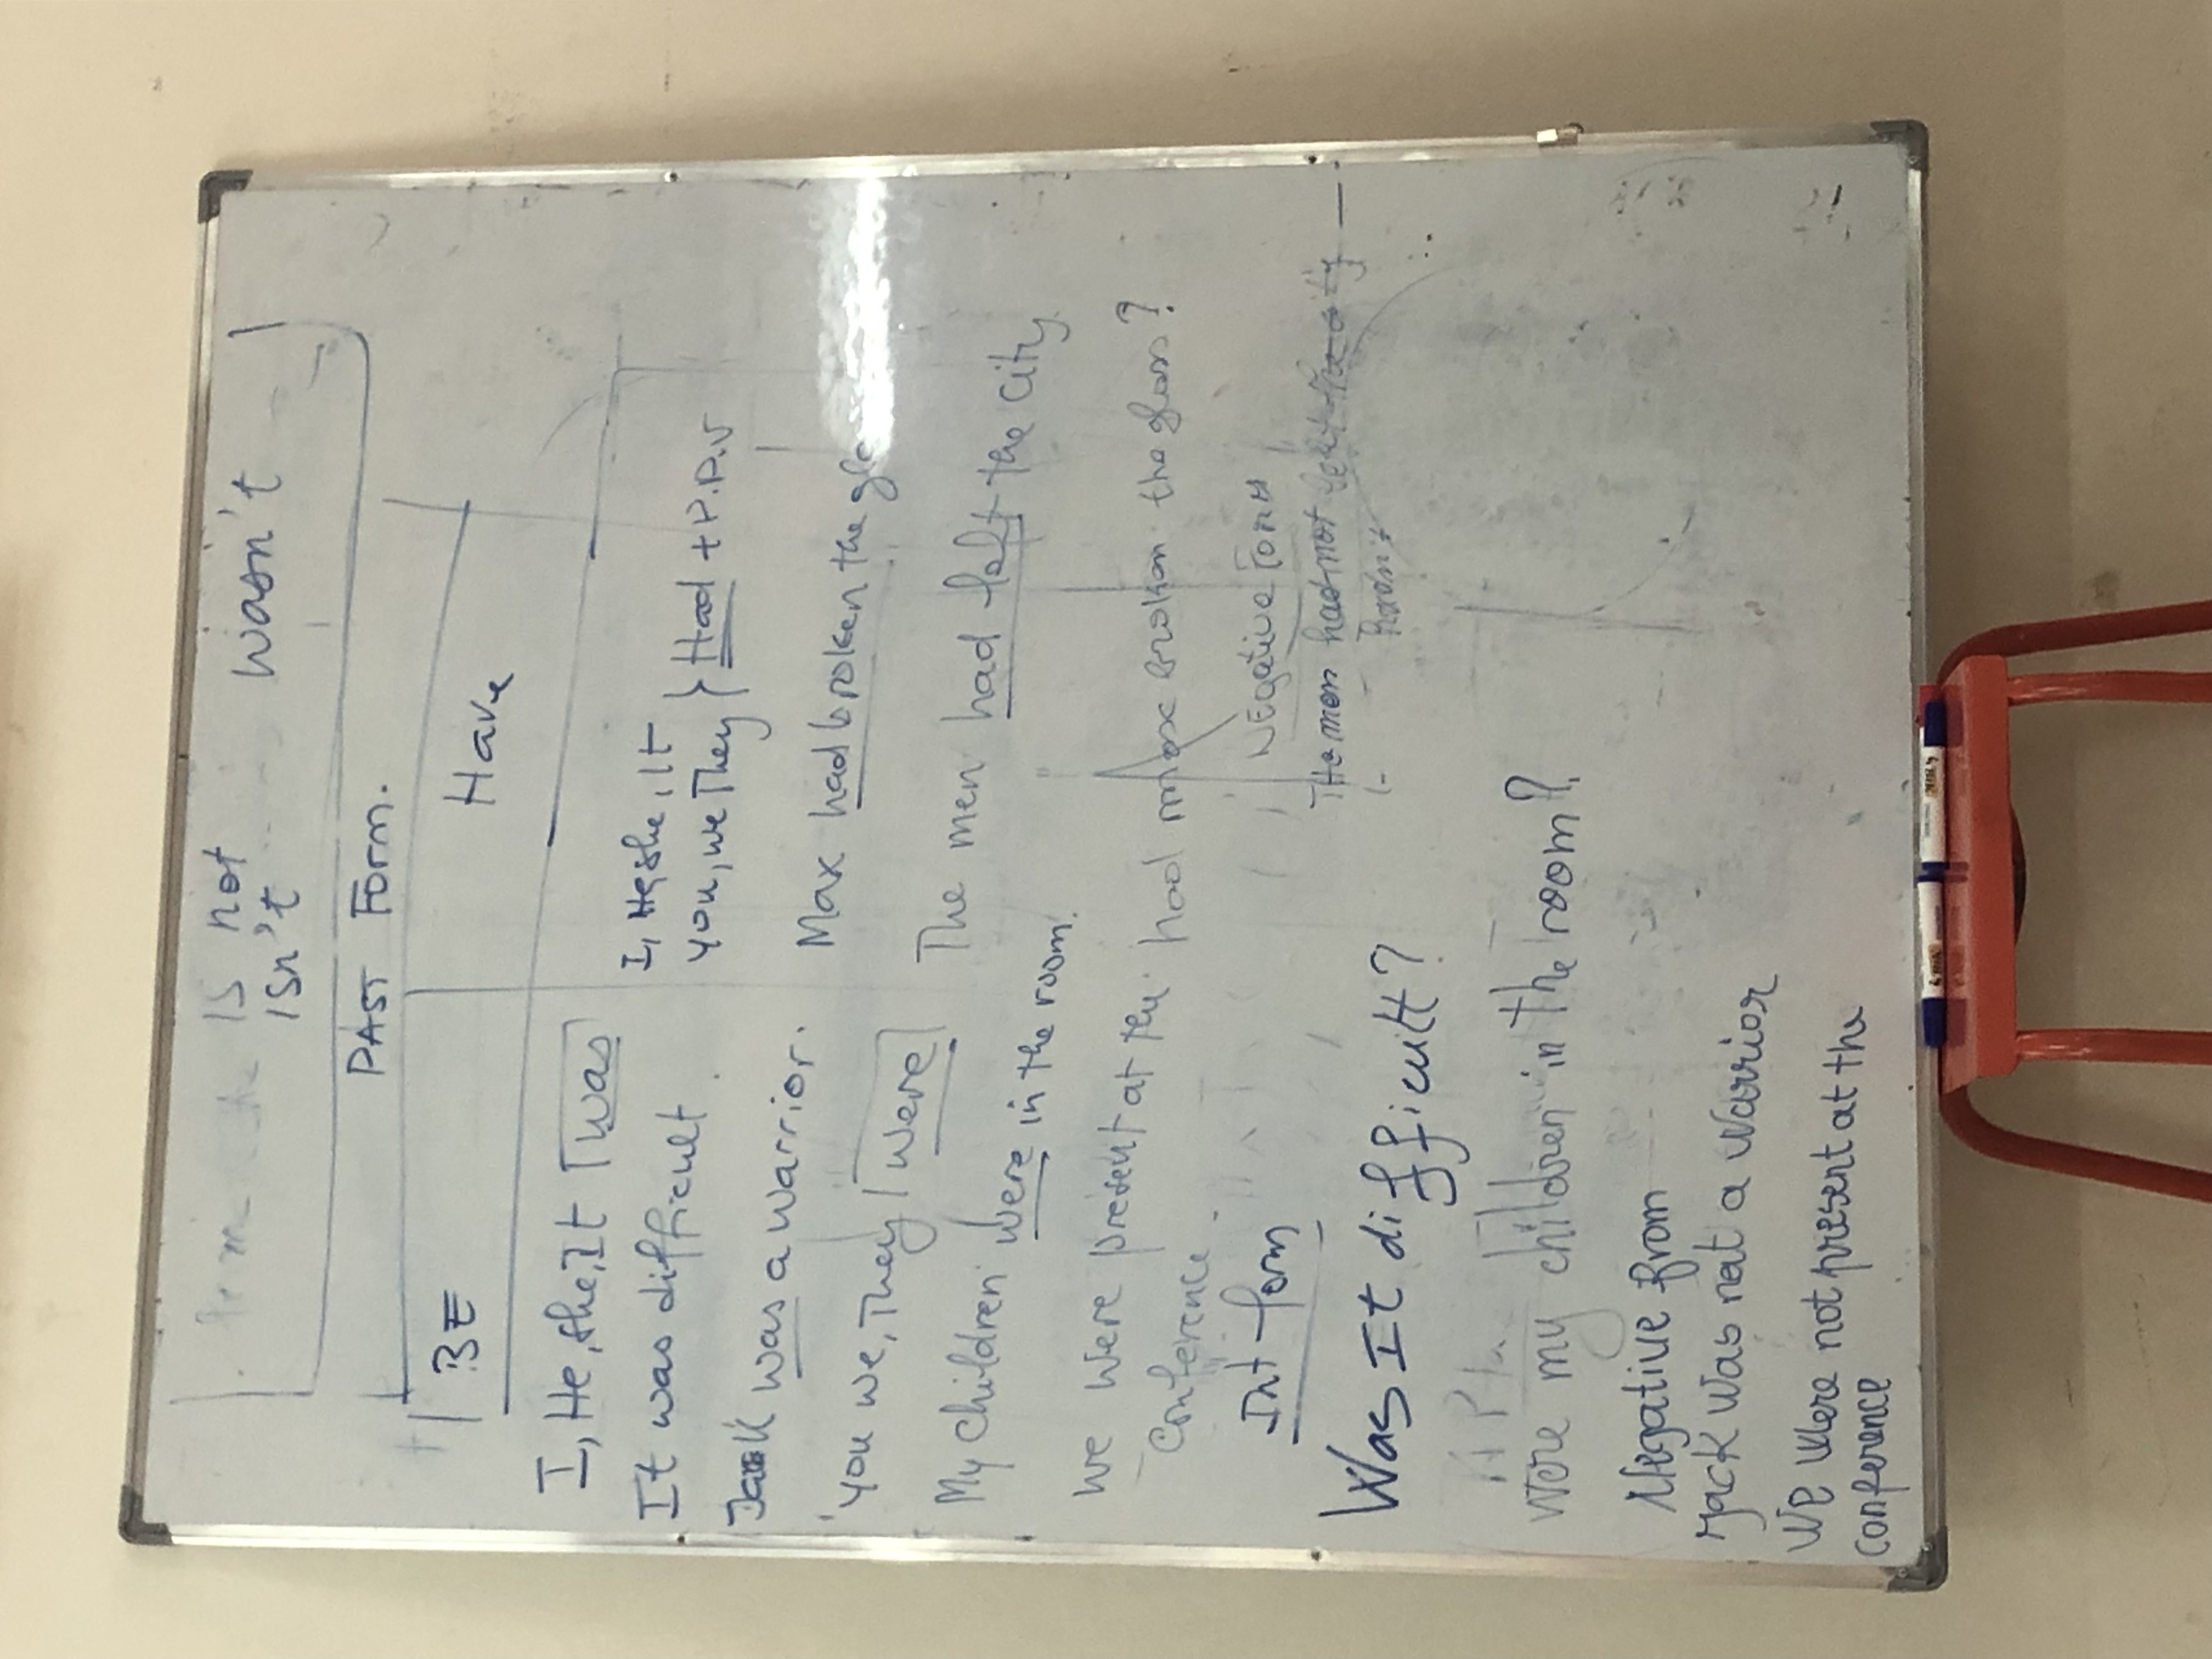 is not
isn't
wasn't
PAST Form.
BE
Have
I, He, she, It was
It was difficult.
Jack was a warrior.
you we, They were
My children were in the room.
we were present at the
conference
Int form
Was It difficult?
were my children in the room?
Negative from
Jack was not a warrior
we were not present at the
conference
I, He she, It
you, we They } Had + P.P.V
Max had broken the
The men had left the city.
had max broken the glass?
Negative Form
The men had not left the city
hadn't